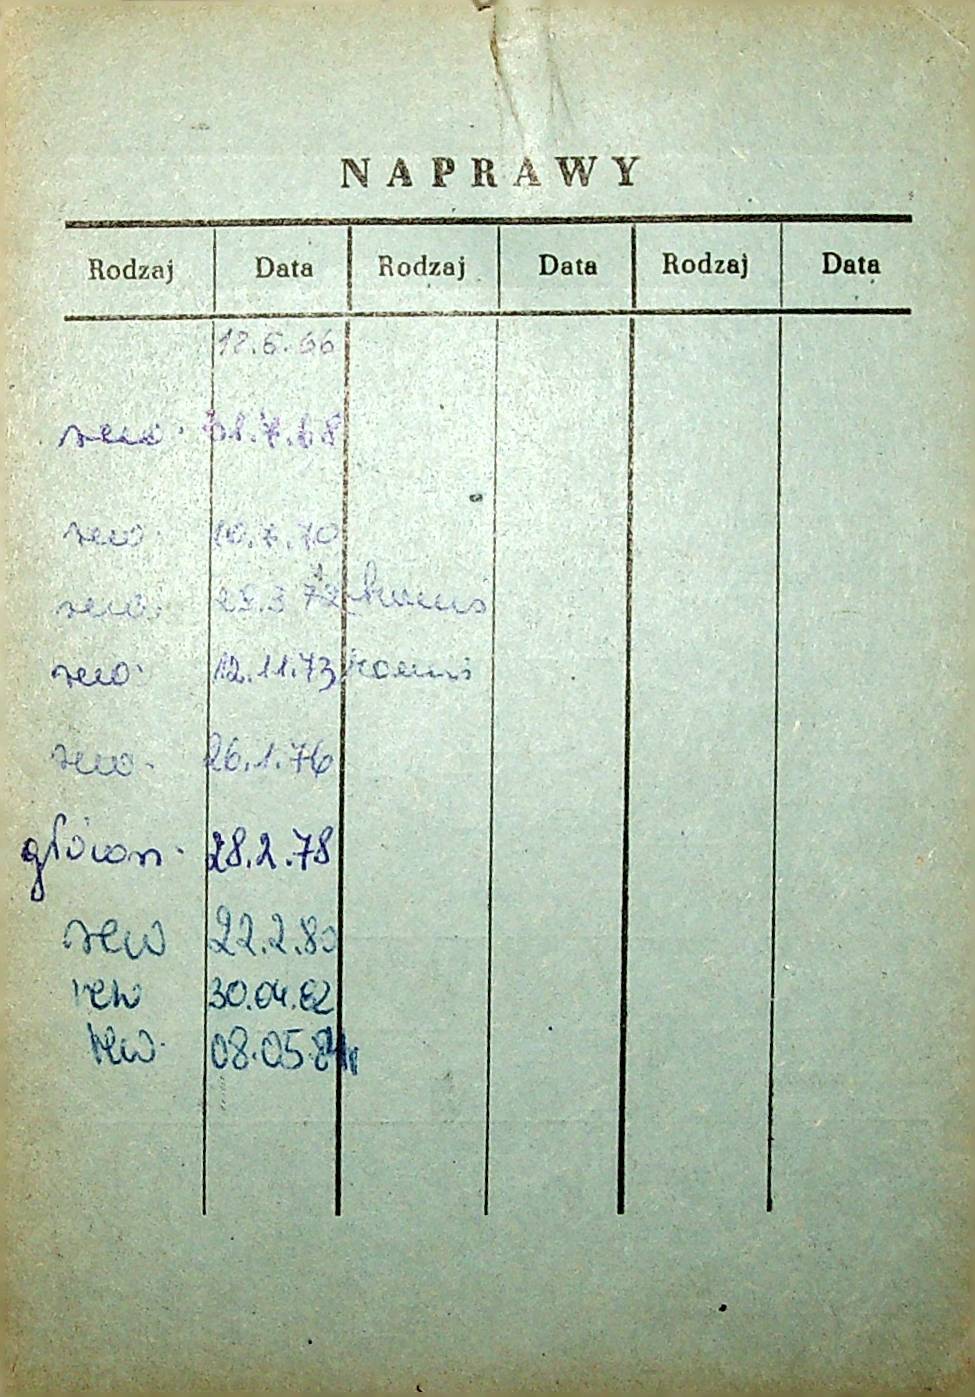 NAPRAWY
Rodzaj Data Rodzaj Data Rodzaj Data
12.6.66
rew. 31.7.68
rew. 10.7.70
rew. 3 72
rew. 12.11.73
rew. 26.1.76
główn. 28.2.78
rew 22.2.80
rew 30.04.82
rew. 08.05.84r